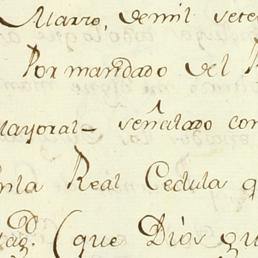 Marzo, demil sete
Por mandado del R
Mayoral - señalado con
enla Real Cedula q
(que Dios gu